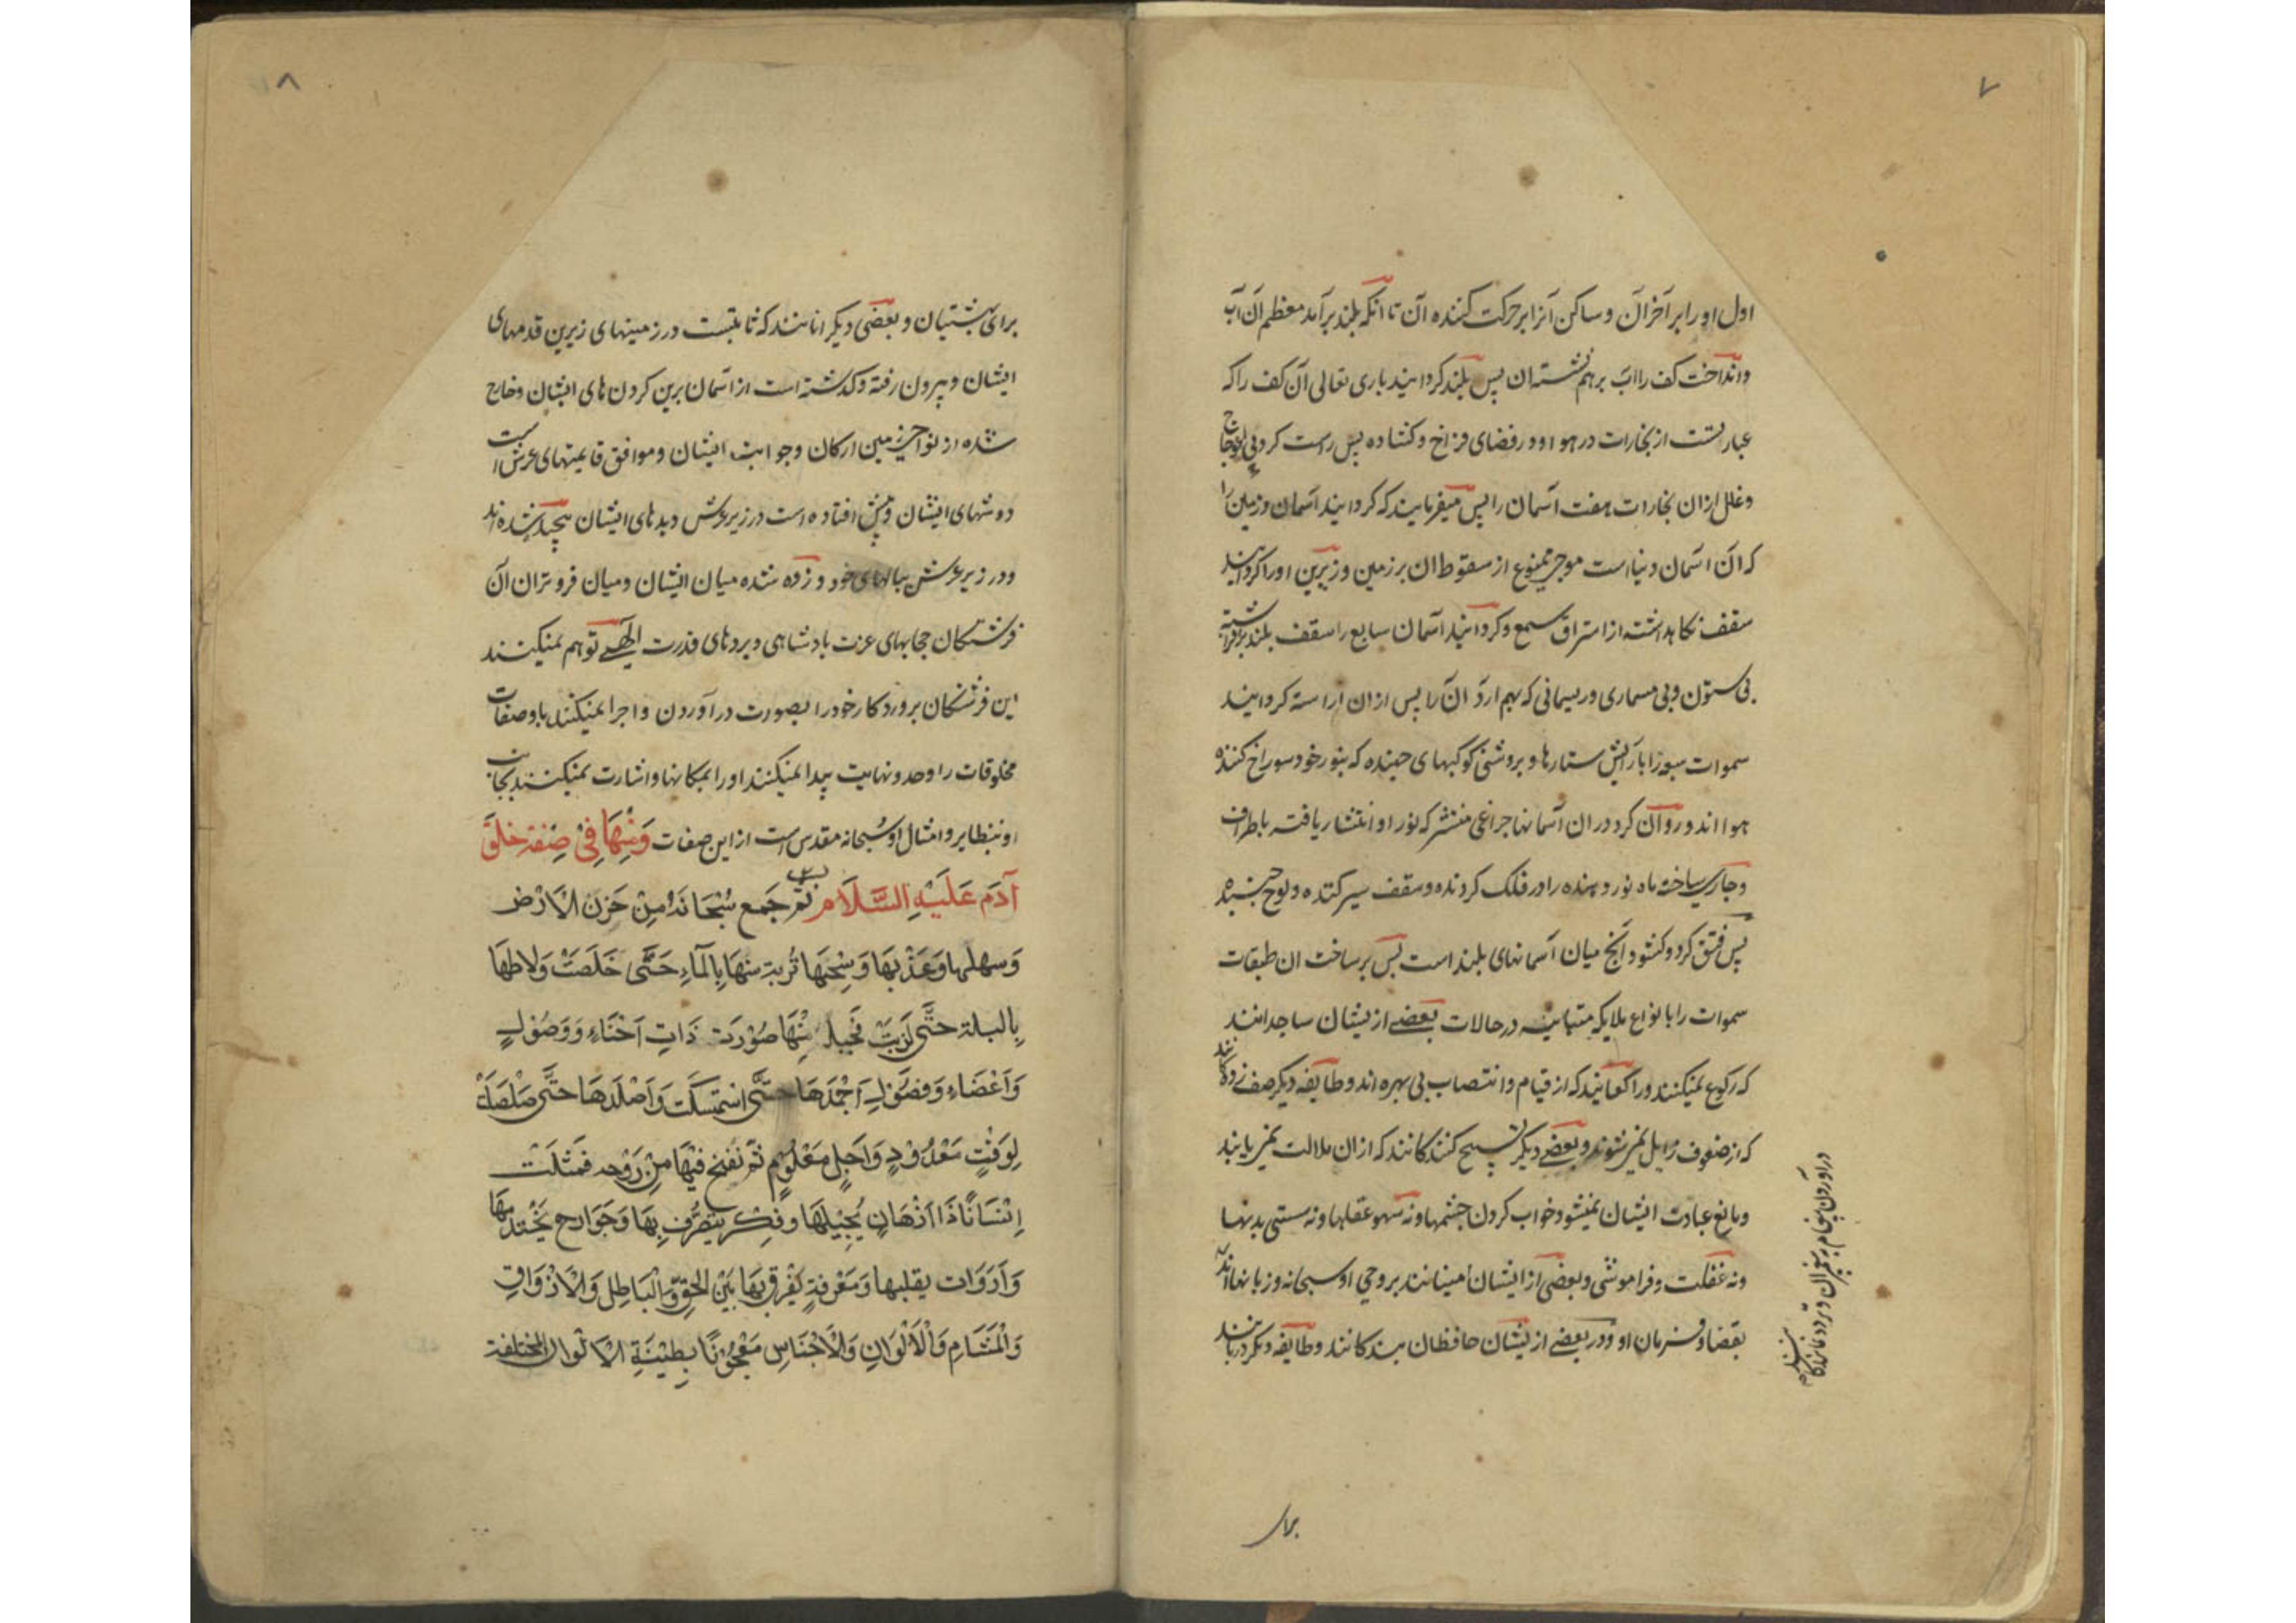 ۷
اول او را بر آخر آن و ساکن آنرا بر حرکت کننده آن تا انکه بلند برآمد معظم آن آب
و انداخت کف را اب برهم نشسته ان پس بلند کردانید باری تعالی آن کف را که
عبارتست از بخارات در هوا و در فضای فراخ و کشاده پس راست کرد بی اعوجاج
و خلل ازان بخارات هفت آسمان را پس میفرمایند که کردانید آسمان و زمین را
که آن اسمان دنیاست موجی ممنوع از سقوط ان بر زمین و زیرین او را کردانید
سقف نکاهداشته از استراق سمع و کردانید آسمان سابع را سقف بلند برافراشته
بی ستون و بی مسماری و ریسمانی که بهم ارد آن را پس ازان اراسته کردانید
سموات سبع را بارایش ستارها و بروشنی کوکبهای جهنده که بنور خود سوراخ کننده
هوا اند و روان کرد دران آسمانها چراغی منتشر که نور او انتشار یافته باطراف
و جاری ساخته ماه نور دهنده را در فلک کردنده و سقف سیر کننده و لوح جنبنده
پس فتق کرد و کشود آنچ میان آسمانهای بلند است پس پر ساخت ان طبقات
سموات را بانواع ملایکه متباینه در حالات بعضے ازیشان ساجدانند
که رکوع نمیکنند و راکعانند که از قیام و انتصاب بی بهره اند و طایفه دیکر صف زده کانند
که از صفوف زایل نمیشوند و بعضے دیکر تسبیح کنندکانند که ازان ملالت نمی یابند
و مانع عبادت ایشان نمیشود خواب کردن چشمها و نه سهو عقلها و نه سستی بدنها
و نه غفلت و فراموشی و بعضی از ایشان امینانند بر وحی او سبحانه و زبانها اند
بقضا و فرمان او و در بعضے ازیشان حافظان بندکانند و طایفه دیکر دربانند
در آوردن پیغام به پیغمبران و تردد نمایندکانند
برای
۸
برای بهشتیان و بعضی دیکر انانند که ثابتست در زمینهای زیرین قدمهای
ایشان و بیرون رفته و کذشته است از آسمان برین کردن های ایشان و خارج
شده از نواحی زمین ارکان و جوانب ایشان و موافق قایمتهای عرش است
دوشهای ایشان و پیش افتاده است در زیر عرش دیدهای ایشان پیچیده شده اند
و در زیر عرش ببالهای خود و زده شده میان ایشان و میان فروتران آن
فرشتکان حجابهای عزت بادشاهی و پردهای قدرت الٰهے توهم نمیکنند
این فرشتکان پروردکار خود را بصورت درآوردن و اجرا نمیکنند باو صفات
مخلوقات را و حد و نهایت پیدا نمیکنند او را بمکانها و اشارت نمیکنند بجانب
او بنظایر و امثال او سُبحانه مقدس است از این صفات وَمِنْهَا فِیْ صِفَةِ خَلْقِ
آدَمَ عَلَیْهِ السَّلَام ثم جَمع سُبْحَانَهُ مِنْ حَزَنِ الْاَرْض
وَسهلها وَعَذْبهَا وَسِبْخهَا تُربة سَنّهَا بِالْمَاءِ حَتَّی خَلَصَتْ وَلاطهَا
بِالبلة حَتَّی لَزَبَتْ فَجبل مِنْهَا صُوْرَت ذَاتِ اَحْنَاءٍ وَ وَصُوْلٍ
وَاَعْضَاءٍ وَفصُوْلٍ اَجْمَدَهَا حَتَّی اسْتمسَکَت وَاَصْلَدَهَا حَتّی صَلْصَلَتْ
لِوَقْتٍ مَعْدُوْدٍ وَاَجَلٍ مَعْلُوْمٍ ثُمّ نَفخ فِیْهَا مِنْ رُوْحه فَمَثلَتْ
اِنْسَانًا ذَا اَذْهَانٍ یُجِیْلهَا وفِکر یَتصَرَّف بِهَا وَجَوَارح یَخْتَدمهَا
وَاَدَوَات یقلبها وَمَعْرفةٍ یَفْرق بِهَا بَیْنَ الْحَقِّ وَالْبَاطِل وَالْاَذْوَاقِ
وَالْمَشَام وَالْاَلْوَانِ وَالْاَجْنَاسِ مَعْجُوْنًا بِطِیْنَةِ الْاَلْوان المُختلفة